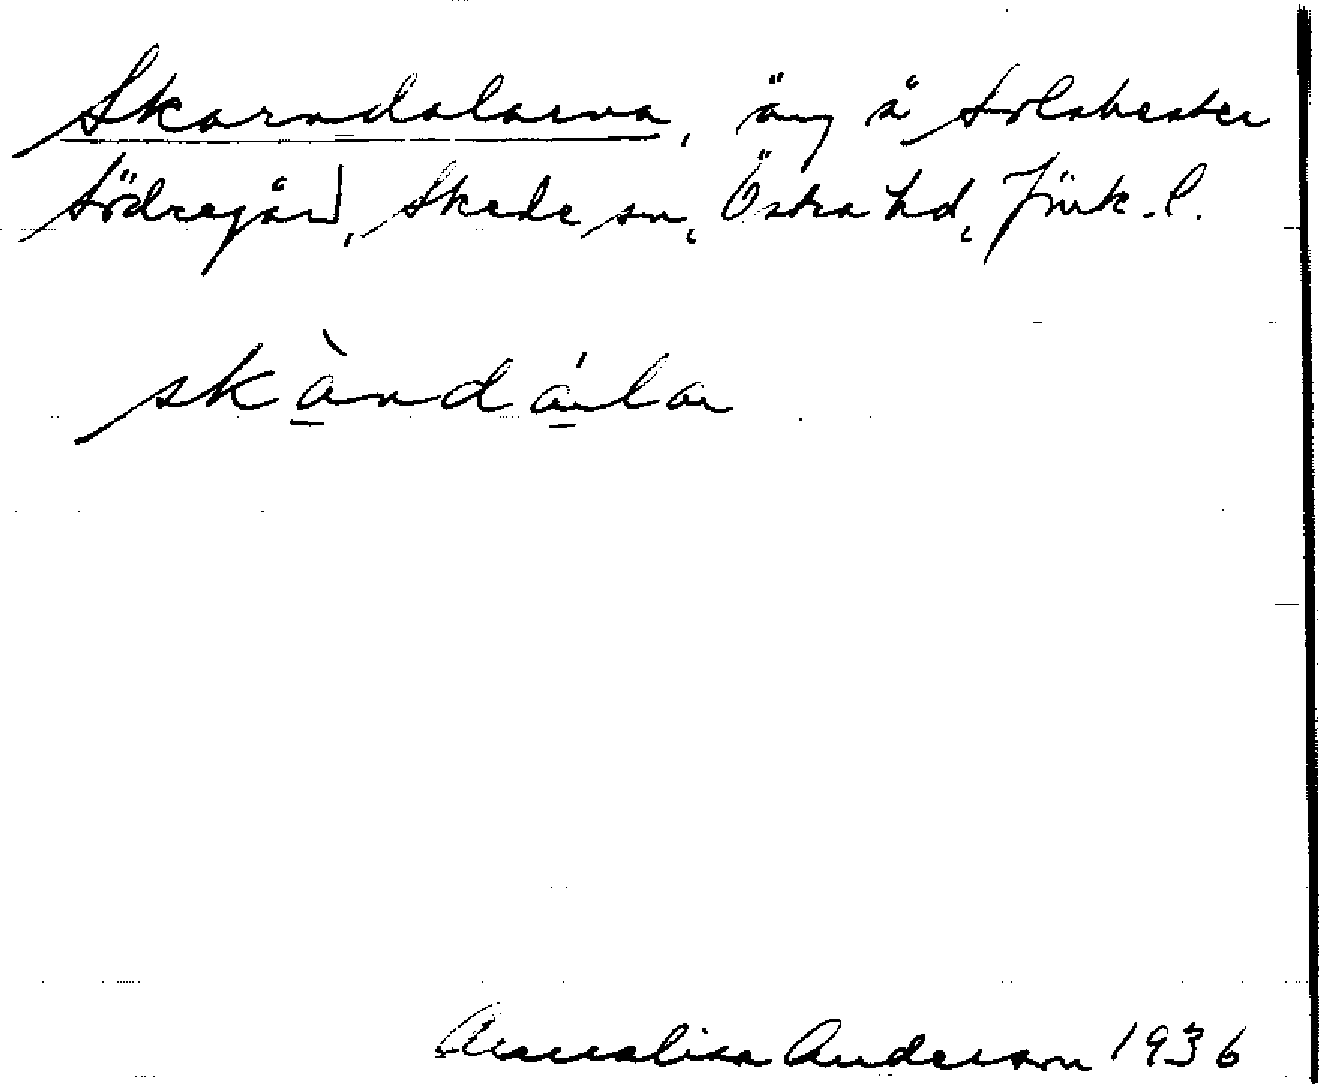 Skarndalarna, äng å Solaberter
Södregård, Skede sn, Östra hd, Jönk. l.
skàndála
Annalisa Anderson 1936